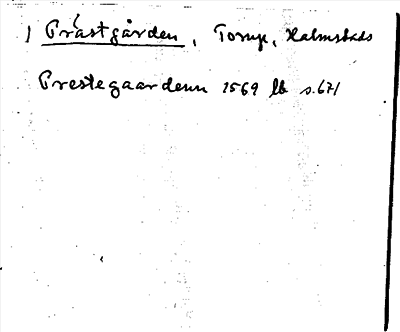 ) Prästgården, Torup, Halmstads
Prestegaardenn 1569 lb s.671